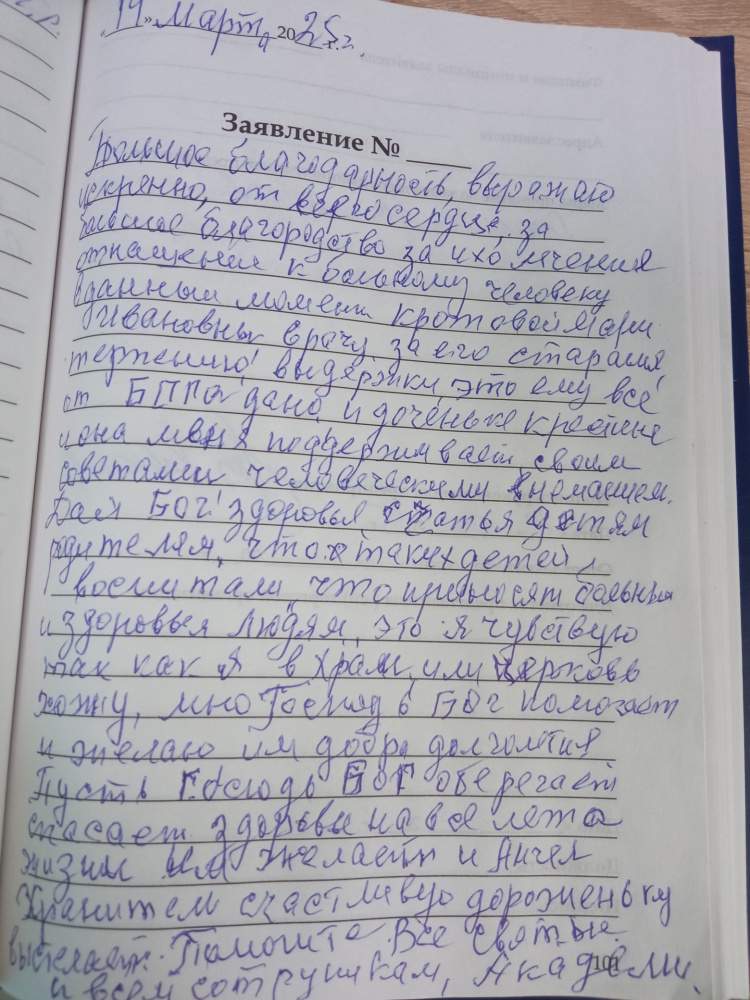 "19" Март, 2025г.
Заявление №
Большое благодарность, выражаю
искрянно, от всего сердце, за
большое благородство за ихо лечения
отнашения к большому человеку
в данный момент Кротовой Мари
Ивановны врачу за его старания,
тержению, выдержки, это ему всё
от Бога дано, и доченьке
и она меня поддерживает, своим
советами человеческими внемашием.
Дай Бог здоровья счатья детям
родителям, что такихдетей
воспитали, что приносят больным
и здоровья людям, это я чувствую
так как я в Храм, или церковь
хожу, мно Господь Бог помогает
и желаю им добра долголтия
Пусть Господь Бог оберегает
спасает здоровье на все лета
жизни им желает и Ангел
Хранителм счастливую дороженьку
высTелает. Помогите Все святые.
и всем сотрудникам, Академи.